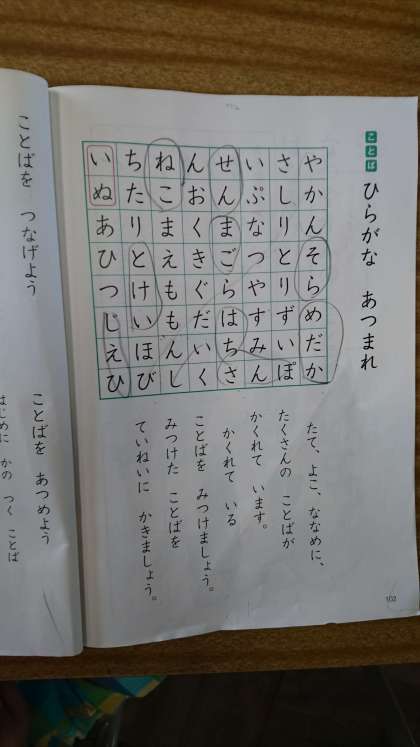 ことば
ひらがな あつまれ
やかんそらめだか
さしりとりずいぽ
いぷなつやすみん
せんまごらはちさ
んおくきぐだいく
ねこまえももんし
ちたりとけいほび
いぬあひつじえひ
たて、よこ、ななめに、
たくさんの ことばが
かくれて います。
かくれて いる
ことばを みつけましょう。
みつけた ことばを
ていねいに かきましょう。
103
ことばを つなげよう
ことばを あつめよう
はじめに かの つく ことば